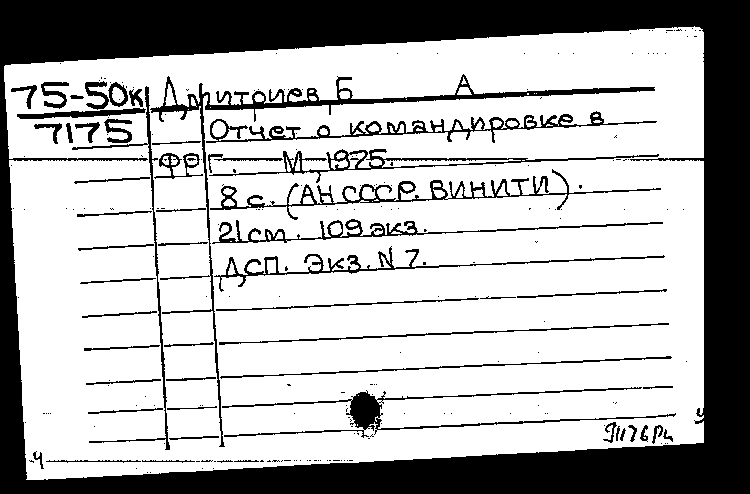 75-50к Дмитриев Б А
7175 Отчет о командировке в
ФРГ. М., 1975.
8 с. (АН СССР. ВИНИТИ).
21 см. 109 экз.
ДСП. Экз. N 7.
ч